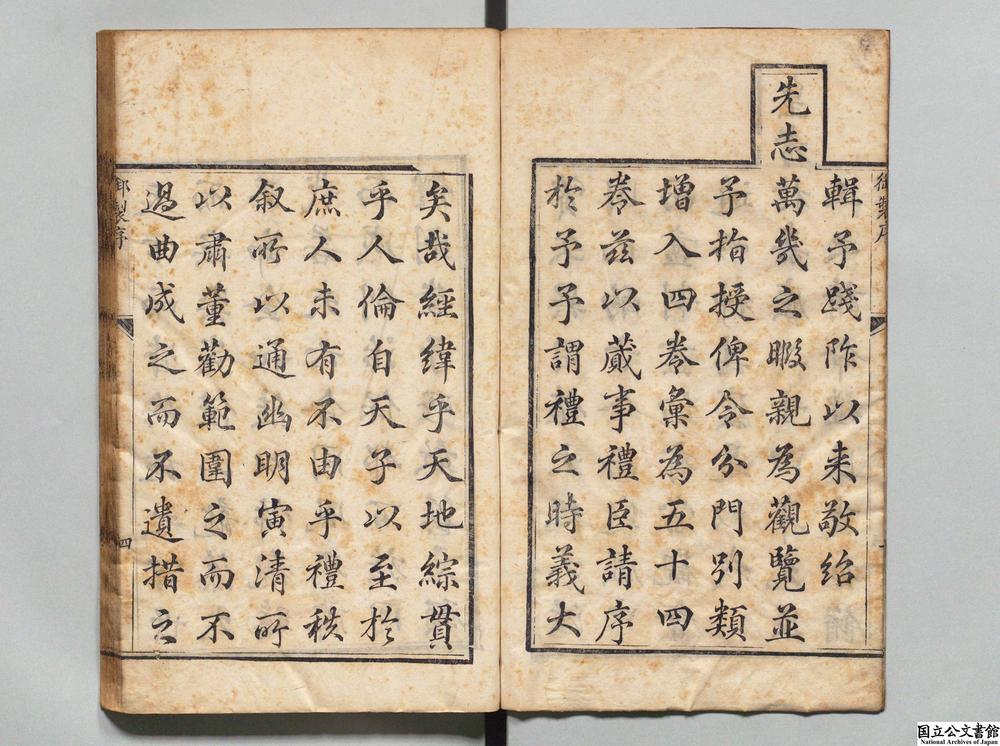 御製序
輯予踐阼以来敬紹
先志萬幾之暇親為觀覽並
予指授俾令分門别類
增入四卷彙為五十四
卷茲以蕆事禮臣請序
於予予謂禮之時義大
矣哉經緯乎天地綜貫
乎人倫自天子以至於
庶人未有不由乎禮秩
叙所以通幽明寅清所
以肅董勸範圍之而不
過曲成之而不遺措之
御製序
四
国立公文書館
National Archives of Japan